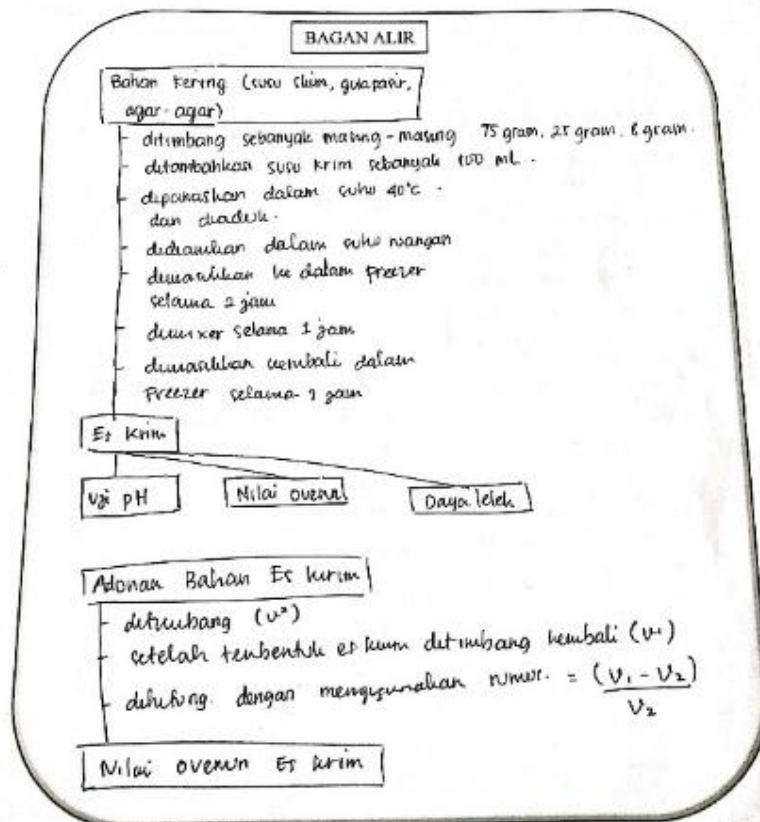 BAGAN ALIR
Bahan kering (susu skim, gula pasir,
agar-agar)
- ditimbang sebanyak masing-masing 75 gram, 25 gram, 8 gram.
- ditambahkan susu krim sebanyak 100 mL.
- dipanaskan dalam suhu 40°C.
dan diaduk.
- didiamkan dalam suhu ruangan
- dimasukkan ke dalam freezer
selama 2 jam
- dimixer selama 1 jam
- dimasukkan kembali dalam
Freezer selama jam
Es krim
Uji pH Nilai overun Daya leleh
Adonan Bahan Es krim
- ditimbang (v²)
- setelah terbentuk es krim ditimbang kembali (v¹)
- dihitung. dengan menggunakan rumus. = (V₁ - V₂)
V₂
Nilai overun Es krim